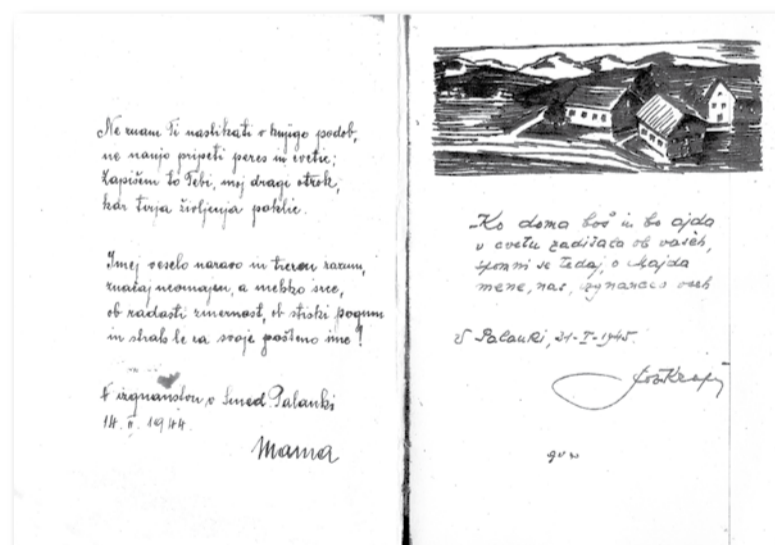 Ne znam Ti naslikati v knjigo podob,
ne nanjo pripeti peres in cvetic;
Zapišem to Tebi, moj dragi otrok,
kar terja življenja poklic.
Imej veselo naravo in trezen razum,
značaj neomajen, a mehko srce,
ob radosti zmernost, ob stiski pogum
in strah le za svoje pošteno ime!
V izgnanstvu v Smed. Palanki
14. II. 1944.
Mama
"Ko doma boš in bo ajda
v cvetu zadišala ob vaseh,
spomni se tedaj, o Majda
mene, nas, izgnancev vseh
V Palanki, 31-I-1945.